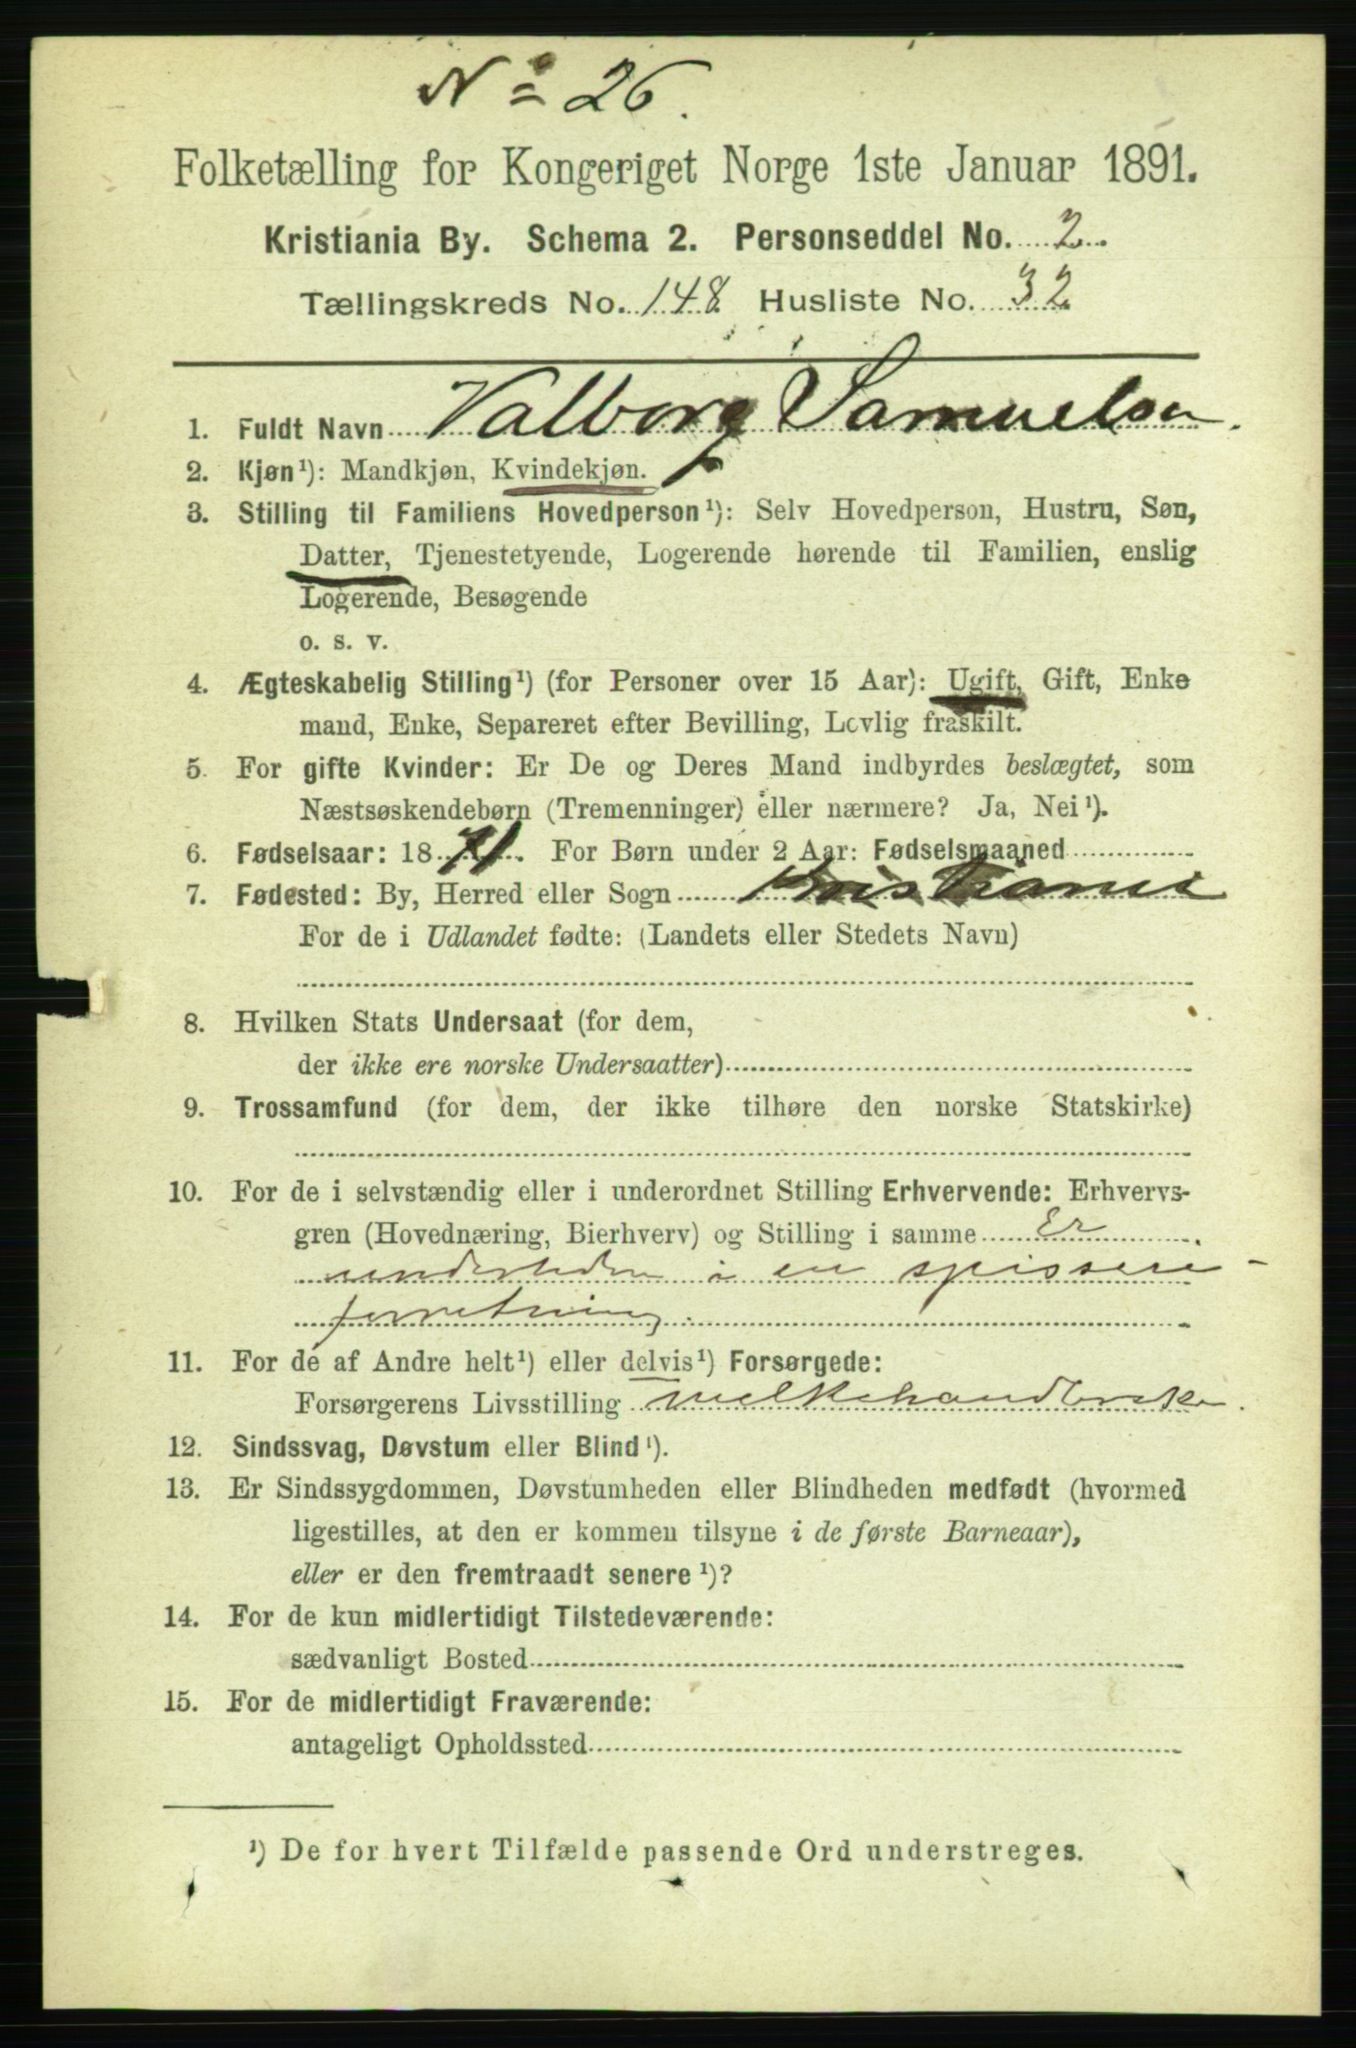 No 26.
Folketælling for Kongeriget Norge 1ste Januar 1891.
Kristiania By. Schema 2. Personseddel No. 2.
Tællingskreds No. 148. Husliste No. 32
1. Fuldt Navn Valborg Samuelsen.
2. Kjøn¹): Mandkjøn, Kvindekjøn.
3. Stilling til Familiens Hovedperson¹): Selv Hovedperson, Hustru, Søn,
Datter, Tjenestetyende, Logerende hørende til Familien, enslig
Logerende, Besøgende
o. s. v.
4. Ægteskabelig Stilling¹) (for Personer over 15 Aar): Ugift, Gift, Enke
mand, Enke, Separeret efter Bevilling, Lovlig fraskilt.
5. For gifte Kvinder: Er De og Deres Mand indbyrdes beslægtet, som
Næstsøskendebørn (Tremenninger) eller nærmere? Ja, Nei¹).
6. Fødselsaar: 1871. For Børn under 2 Aar: Fødselsmaaned
7. Fødested: By, Herred eller Sogn Kristiania
For de i Udlandet fødte: (Landets eller Stedets Navn)
8. Hvilken Stats Undersaat (for dem,
der ikke ere norske Undersaatter)
9. Trossamfund (for dem, der ikke tilhøre den norske Statskirke)
10. For de i selvstændig eller i underordnet Stilling Erhvervende: Erhvervs-
gren (Hovednæring, Bierhverv) og Stilling i samme Er
i en
forretning.
11. For de af Andre helt¹) eller delvis¹) Forsørgede:
Forsørgerens Livsstilling melkehandlerske.
12. Sindssvag, Døvstum eller Blind¹).
13. Er Sindssygdommen, Døvstumheden eller Blindheden medfødt (hvormed
ligestilles, at den er kommen tilsyne i de første Barneaar),
eller er den fremtraadt senere¹)?
14. For de kun midlertidigt Tilstedeværende:
sædvanligt Bosted
15. For de midlertidigt Fraværende:
antageligt Opholdssted
¹) De for hvert Tilfælde passende Ord understreges.